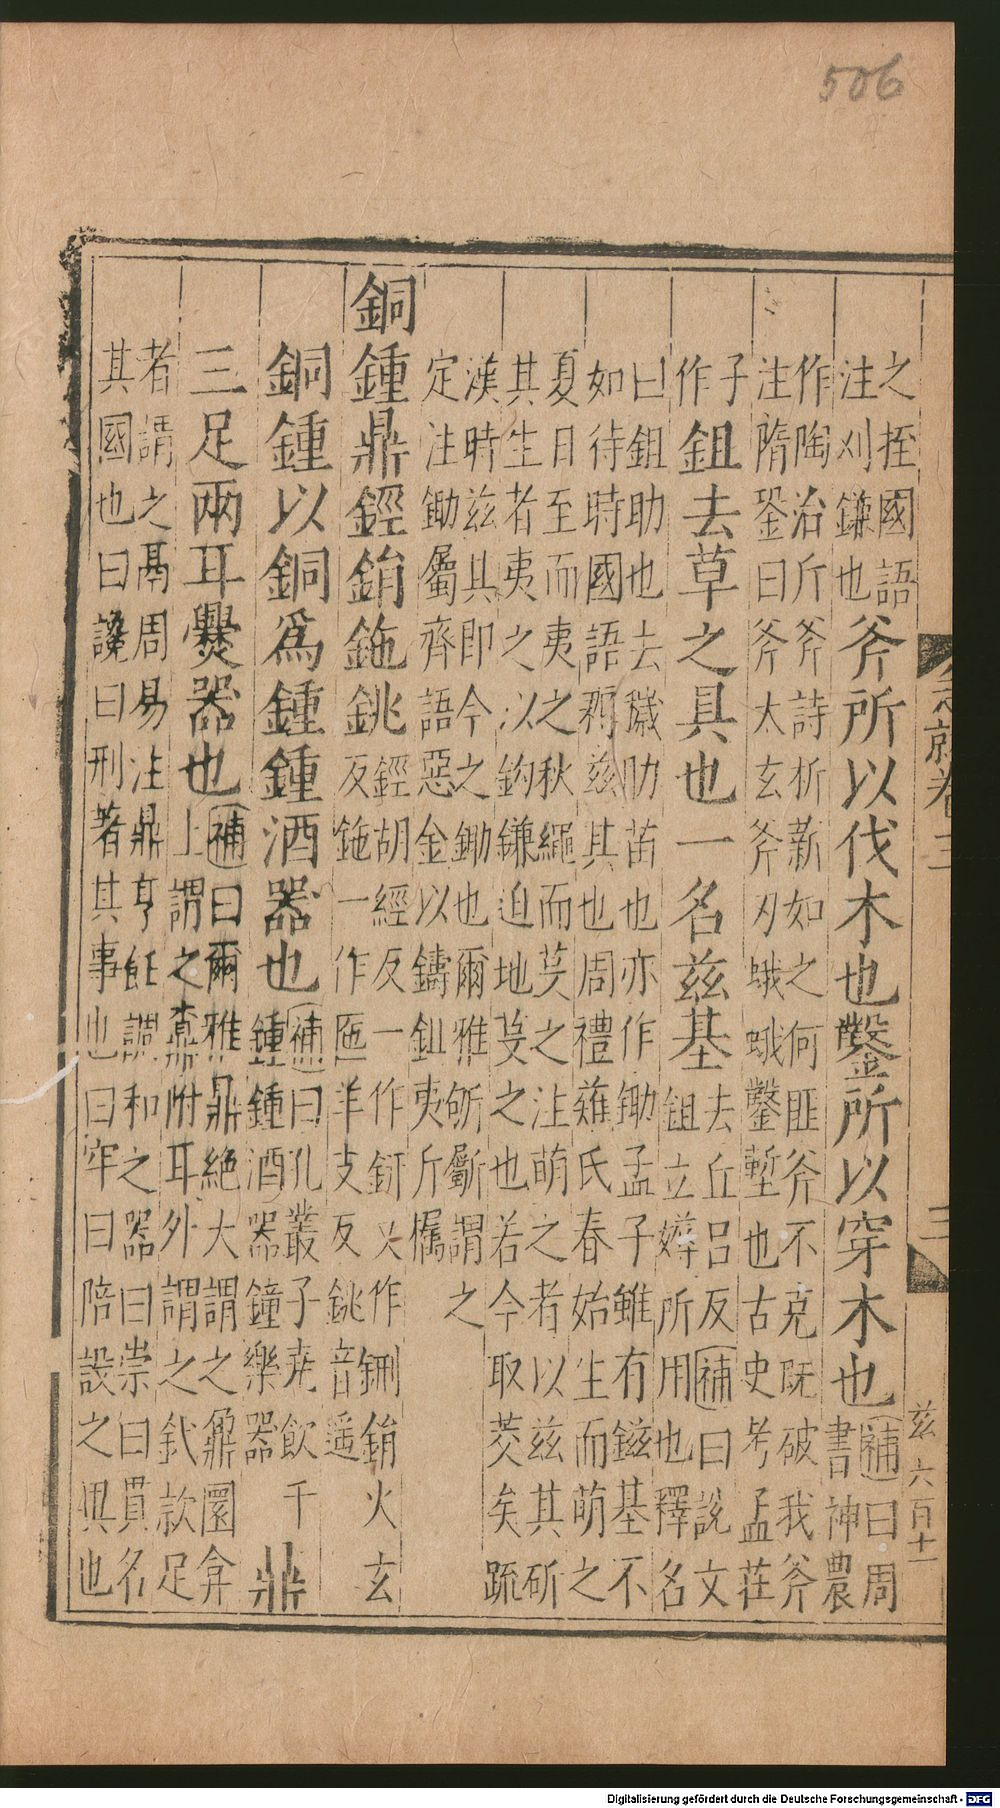 506
之挃國語
注刈鎌也
斧所以伐木也鑿所以穿木也
補曰周
書神農
作陶冶斤斧詩析薪如之何匪斧不克既破我斧
注隋銎曰斧太玄斧刃蛾蛾鑿塹也古史考孟莊
子
作
鉏去草之具也一名茲基
去丘呂反補曰說文
鉏立薅所用也釋名
曰鉏助也去穢助苗也亦作鋤孟子雖有鎡基不
如待時國語耨茲其也周禮薙氏春始生而萌之
夏日至而夷之秋繩而芟之注萌之者以茲其斫
其生者夷之以鉤鎌迫地芟之也若今取茭矣疏
漢時茲其即今之鋤也爾雅斪斸謂之
定注鋤屬齊語惡金以鑄鉏夷斤欘
銅鍾鼎鋞鋗鉇銚
鋞胡經反一作鈃又作鉶鋗火玄
反鉇一作匜羊支反銚音遥
銅鍾以銅爲鍾鍾酒器也
補曰孔叢子堯飲千
鍾鍾酒器鐘樂器
鼎
三足兩耳爨器也
補曰爾雅鼎絕大謂之鼐圜弇
上謂之鼒附耳外謂之釴款足
者謂之鬲周易注鼎亨飪調和之器曰崇曰貫名
其國也曰讒曰刑著其事也曰牢曰陪設之與也
急就卷三
三
茲 六百十一
Digitalisierung gefördert durch die Deutsche Forschungsgemeinschaft - DFG